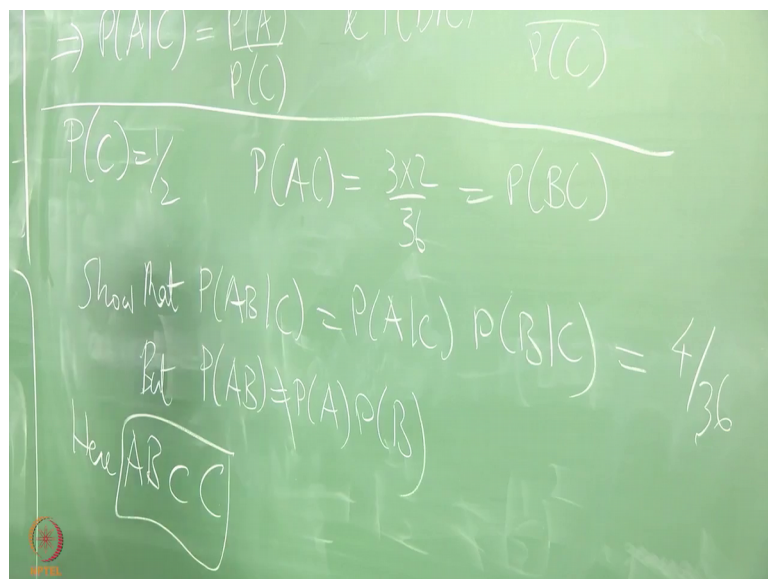 ⇒ P(A|C) = P(A)/P(C) & P(B|C) /P(C)
P(C)=1/2 P(AC) = 3×2/36 = P(BC)
Show that P(AB|C) = P(A|C) P(B|C) = 4/36
But P(AB)≠P(A)P(B)
Here AB ⊂ C
NPTEL